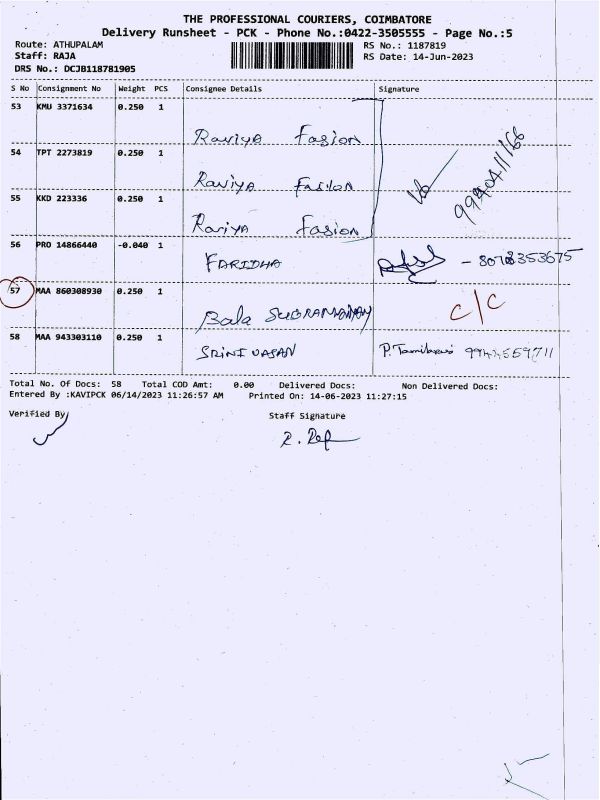 THE PROFESSIONAL COURIERS, COIMBATORE
Delivery Runsheet - PCK - Phone No.:0422-3505555 - Page No.:5
Route: ATHUPALAM RS No.: 1187819
Staff: RAJA RS Date: 14-Jun-2023
DRS No.: DCJB118781905
S No Consignment No Weight PCS Consignee Details Signature
53 KMU 3371634 0.250 1
Raviya Fasion
54 TPT 2273819 0.250 1
Raviya Fasion
55 KKD 223336 0.250 1
Raviya Fasion
56 PRO 14866440 -0.040 1
FARIDHA
57 MAA 860308930 0.250 1
Bala SUBRAMANIAM C/C
58 MAA 943303110 0.250 1
SRINIVASAN
Total No. Of Docs: 58 Total COD Amt: 0.00 Delivered Docs: Non Delivered Docs:
Entered By :KAVIPCK 06/14/2023 11:26:57 AM Printed On: 14-06-2023 11:27:15
Verified By Staff Signature